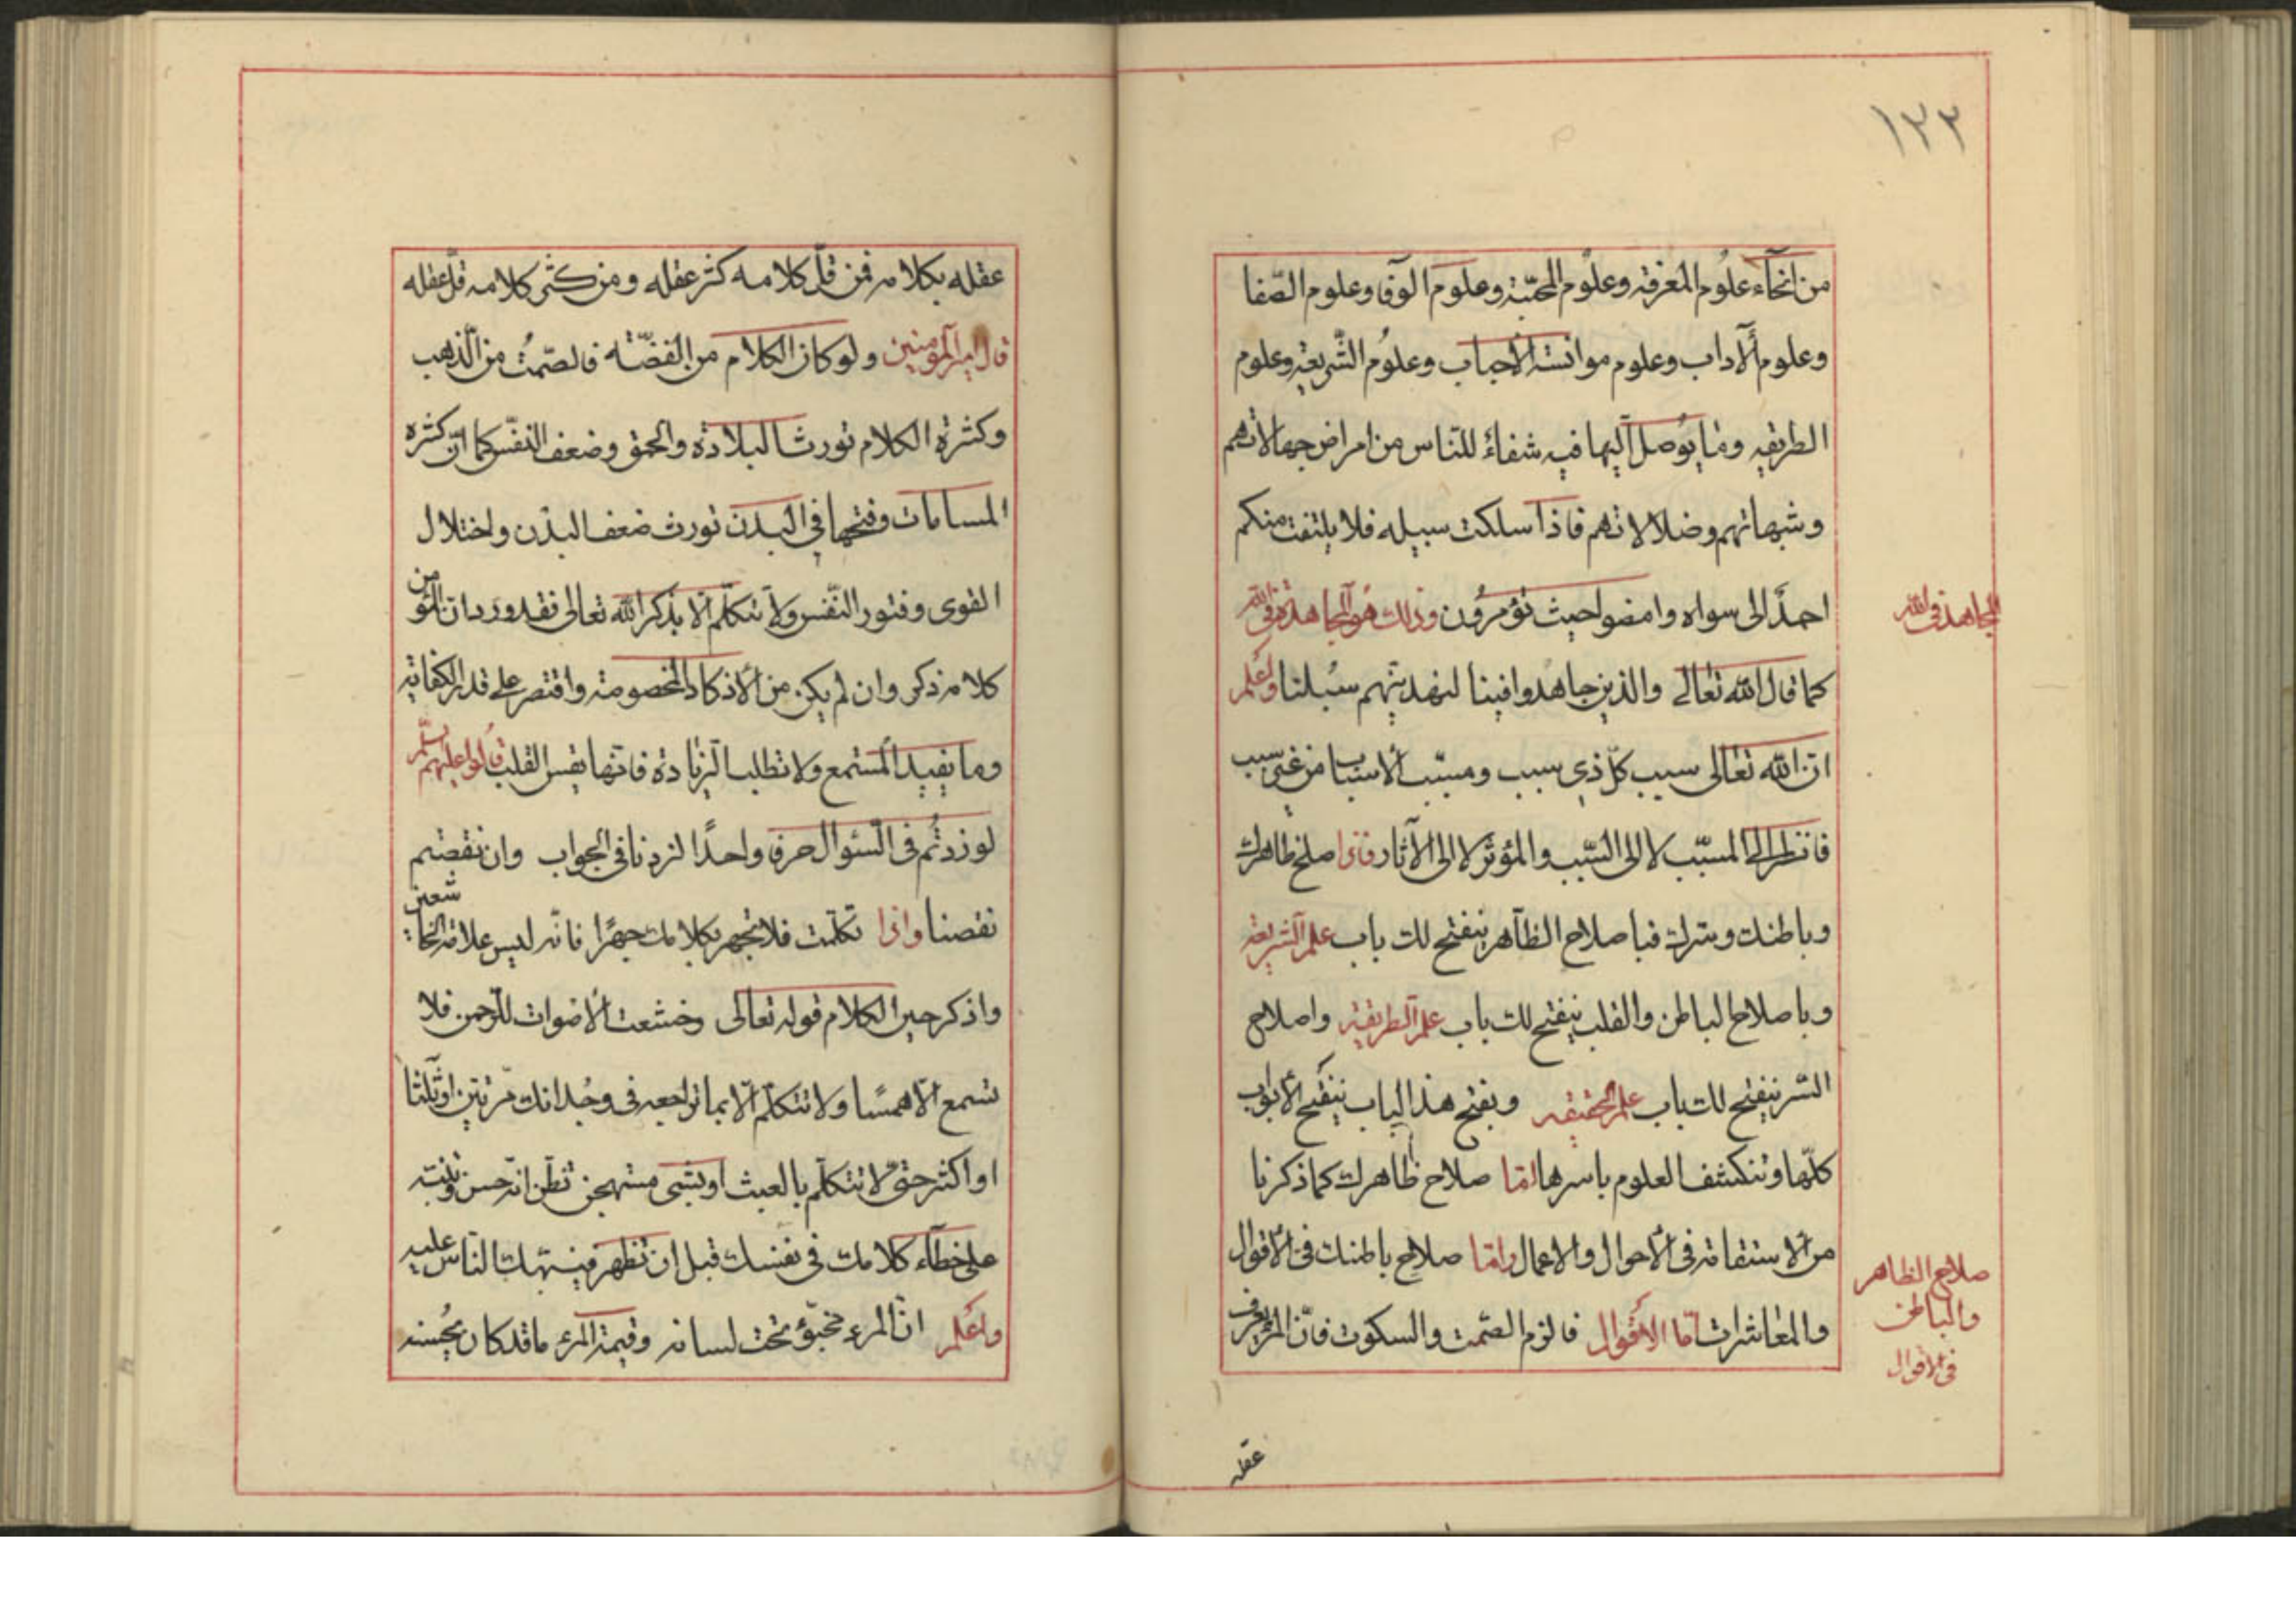 ١٣٢
من انحآء علوم المعرفة وعلوم المحبّة وعلوم الوفا وعلوم الصّفا
وعلوم ألآداب وعلوم موانسة الأحباب وعلوم الشّريعة وعلوم
الطريقه وما يوصل اليها فيه شفاءٌ للنّاس من امراض جهالاتهم
وشبهاتهم وضلالاتهم فاذا سلكت سبيله فلا يلتفت منكم
احدٌ الى سواه وامضوا حيث تؤمرون وذلك هو المجاهدة في الله
المجاهدة في الله
كما قال الله تعالى والذين جاهدوا فينا لنهدينّهم سبلنا واعلم
انّ الله تعالى سبب كلّ ذي سبب ومسبّب ألاسباب من غير سبب
فانظر الى المسبّب لا الى السّبب والمؤثر لا الى الآثار فاذا اصلح ظاهرك
وباطنك وسرك فباصلاح الظآهر ينفتح لك باب علم الشّريعة
وباصلاح الباطن والقلب ينفتح لك باب علم الطريقه واصلاح
السّر ينفتح لك باب علم الحقيقه وبفتح هذا الباب ينفتح الأبواب
كلّها وتنكشف العلوم باسرها امّا صلاح ظاهرك كما ذكرنا
من ألاستقامة في الأحوال والاعمال وامّا صلاح باطنك في الأقوال
صلاح الظاهر
والباطن
في الاقوال
والمعاشرات امّا الأقوال فالزم الصّمت والسكوت فانّ المرء يعرف
عقله
عقله بكلامه فمن قلّ كلامه كثر عقله ومن كثر كلامه قلّ عقله
قال امير المؤمنين ولو كان الكلام من الفضّة فالصّمتُ من الذّهب
وكثرة الكلام تورث البلادة والحمق وضعف النفس كما انّ كثرة
المسامات وفتحها في البدن تورث ضعف البدن واختلال
القوى وفتور النّفس ولا تتكلّم الّا بذكر الله تعالى فقد ورد ان المؤمن
كلامه ذكر وان لم يكن من ألاذكار المخصوصة واقتصر على قدر الكفاية
وما يفيد المستمع ولا تطلب الزيادة فانّها يقس القلب قالوا عليهم سلّم
لو زدتُم في السّئوال حرفا واحدًا لزدنا في الجواب وان نقصتم
نقصنا واذا تكلّمت فلا تجهر بكلامك جهرًا فانّه ليس علامة الخاشعين
واذكر حين الكلام قوله تعالى وخشعت ألاصوات للرّحمن فلا
تسمع الّا همسًا ولا تتكلّم الّا بما تراجعه في وجدانك مرّتين او ثلثا
او اكثر حتّى لا تتكلّم بالعبث او بشى مستهجن تظن انّه حسن وتنبّه
على خطآء كلامك في نفسك قبل ان تظهر فينبّهك النّاس عليه
واعلم انّ المرء مخبّؤ تحت لسانه وقيمة المرء ما قد كان يُحسنه